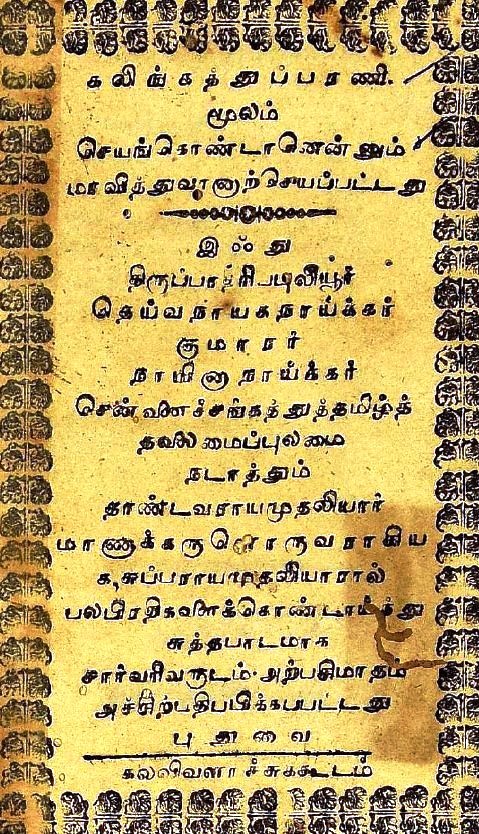 கலிங்கத்துப்பரணி.
மூலம்
செயங்கொண்டானென்னும்
மாவித்துவானாற்செயப்பட்டது
இஃது
திருப்பாதிரிபபுலியூர்
தெய்வநாயகநாய்க்கர்
குமாரர்
நாயினாநாய்க்கர்
சென்னைச்சங்கத்துத்தமிழ்த்
தலைமைப்புலமை
நடாத்தும்
தாண்டவராயமுதலியார்
மாணாக்கருளொருவராகிய
க,சுப்பராயமுதலியாரால்
பலபிரதிகளைக்கொண்டாய்ந்து
சுத்தபாடமாக
சார்வரிவருடம்-அற்பசிமாதம்
அச்சிற்பதிபபிக்கபபட்டது
புதுவை
கலவிவளாச்சுககூடம்